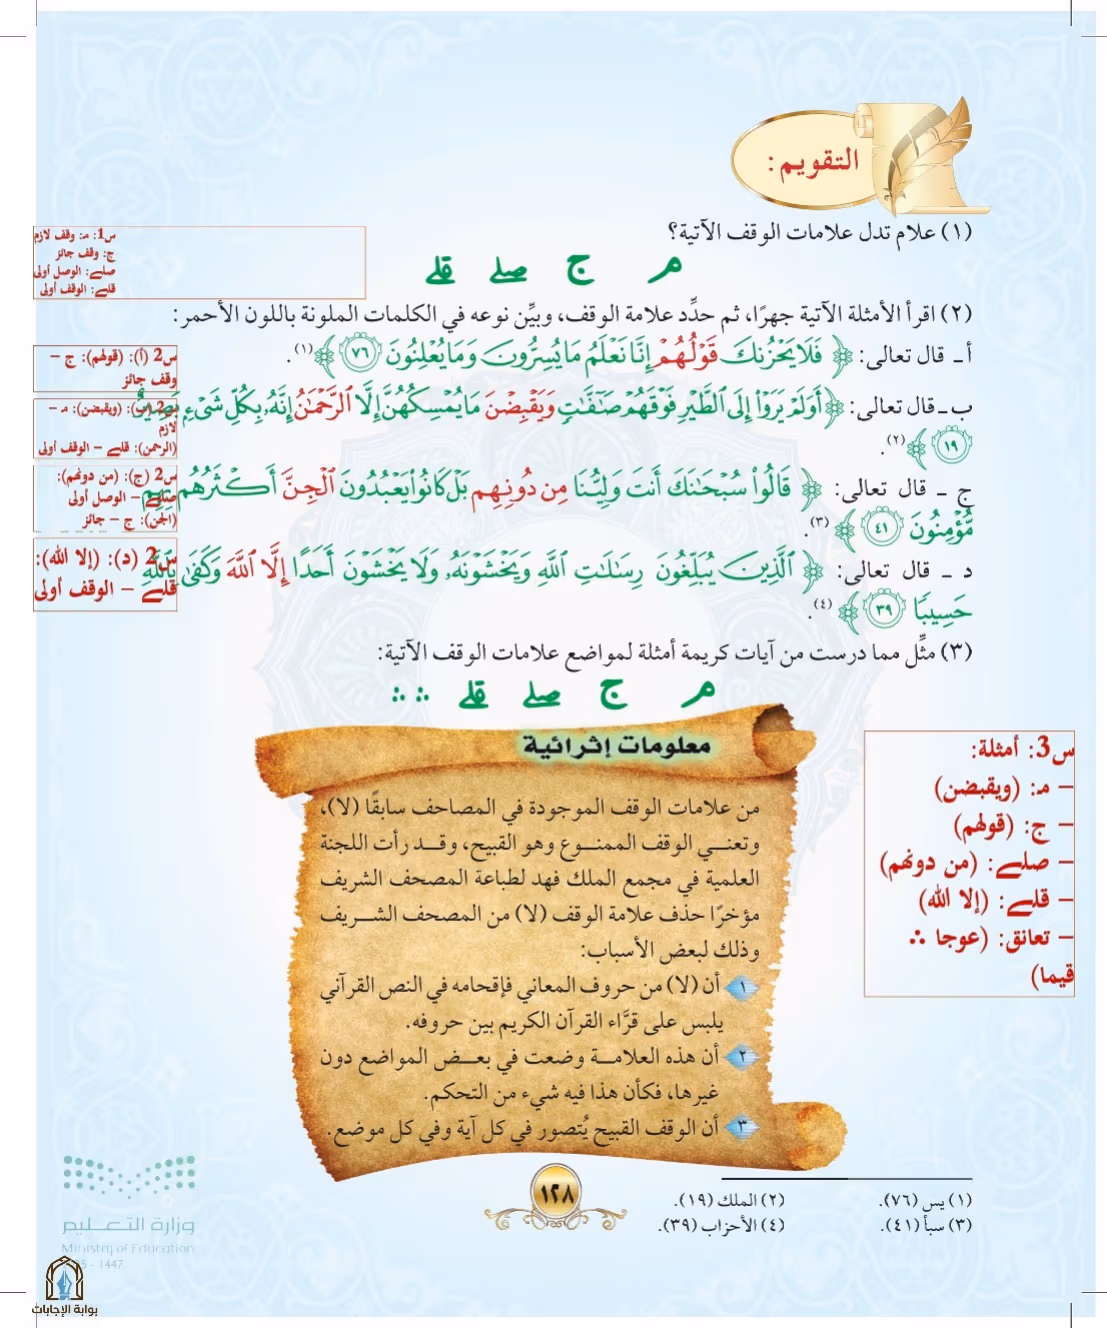 التقويم:
(١) علام تدل علامات الوقف الآتية؟
مـ ج صلے قلے
س1: مـ: وقف لازم
ج: وقف جائز
صلے: الوصل أولى
قلے: الوقف أولى
(٢) اقرأ الأمثلة الآتية جهرًا، ثم حدِّد علامة الوقف، وبيِّن نوعه في الكلمات الملونة باللون الأحمر:
أ ـ قال تعالى: ﴿ فَلَا يَحْزُنكَ قَوْلُهُمْ إِنَّا نَعْلَمُ مَا يُسِرُّونَ وَمَا يُعْلِنُونَ ٧٦ ﴾(١).
س2 (أ): (قولهم): ج –
وقف جائز
ب ـ قال تعالى: ﴿ أَوَلَمْ يَرَوْا إِلَى الطَّيْرِ فَوْقَهُمْ صَافَّاتٍ وَيَقْبِضْنَ مَا يُمْسِكُهُنَّ إِلَّا الرَّحْمَنُ إِنَّهُ بِكُلِّ شَيْءٍ بَصِيرٌ
١٩ ﴾(٢).
س2 (ب): (ويقبضن): مـ –
لازم
(الرحمن): قلے – الوقف أولى
ج ـ قال تعالى: ﴿ قَالُوا سُبْحَانَكَ أَنتَ وَلِيُّنَا مِن دُونِهِم بَلْ كَانُوا يَعْبُدُونَ الْجِنَّ أَكْثَرُهُم بِهِم
مُّؤْمِنُونَ ٤١ ﴾(٣).
س2 (ج): (من دونهم):
صلے – الوصل أولى
(الجن): ج – جائز
د ـ قال تعالى: ﴿ الَّذِينَ يُبَلِّغُونَ رِسَالَاتِ اللَّهِ وَيَخْشَوْنَهُ وَلَا يَخْشَوْنَ أَحَدًا إِلَّا اللَّهَ وَكَفَى بِاللَّهِ
حَسِيبًا ٣٩ ﴾(٤).
س2 (د): (إلا الله):
قلے – الوقف أولى
(٣) مثِّل مما درست من آيات كريمة أمثلة لمواضع علامات الوقف الآتية:
مـ ج صلے قلے ∴ ∴
س3: أمثلة:
– مـ: (ويقبضن)
– ج: (قولهم)
– صلے: (من دونهم)
– قلے: (إلا الله)
– تعانق: (عوجا ∴
قيما)
معلومات إثرائية
من علامات الوقف الموجودة في المصاحف سابقًا (لا)،
وتعني الوقف الممنوع وهو القبيح، وقد رأت اللجنة
العلمية في مجمع الملك فهد لطباعة المصحف الشريف
مؤخرًا حذف علامة الوقف (لا) من المصحف الشريف
وذلك لبعض الأسباب:
١ أن (لا) من حروف المعاني فإقحامه في النص القرآني
يلبس على قرَّاء القرآن الكريم بين حروفه.
٢ أن هذه العلامة وضعت في بعض المواضع دون
غيرها، فكأن هذا فيه شيء من التحكم.
٣ أن الوقف القبيح يُتصور في كل آية وفي كل موضع.
(١) يس (٧٦). (٢) الملك (١٩).
(٣) سبأ (٤١). (٤) الأحزاب (٣٩).
١٢٨
وزارة التعليم
Ministry of Education
1447 -
بوابة الإجابات